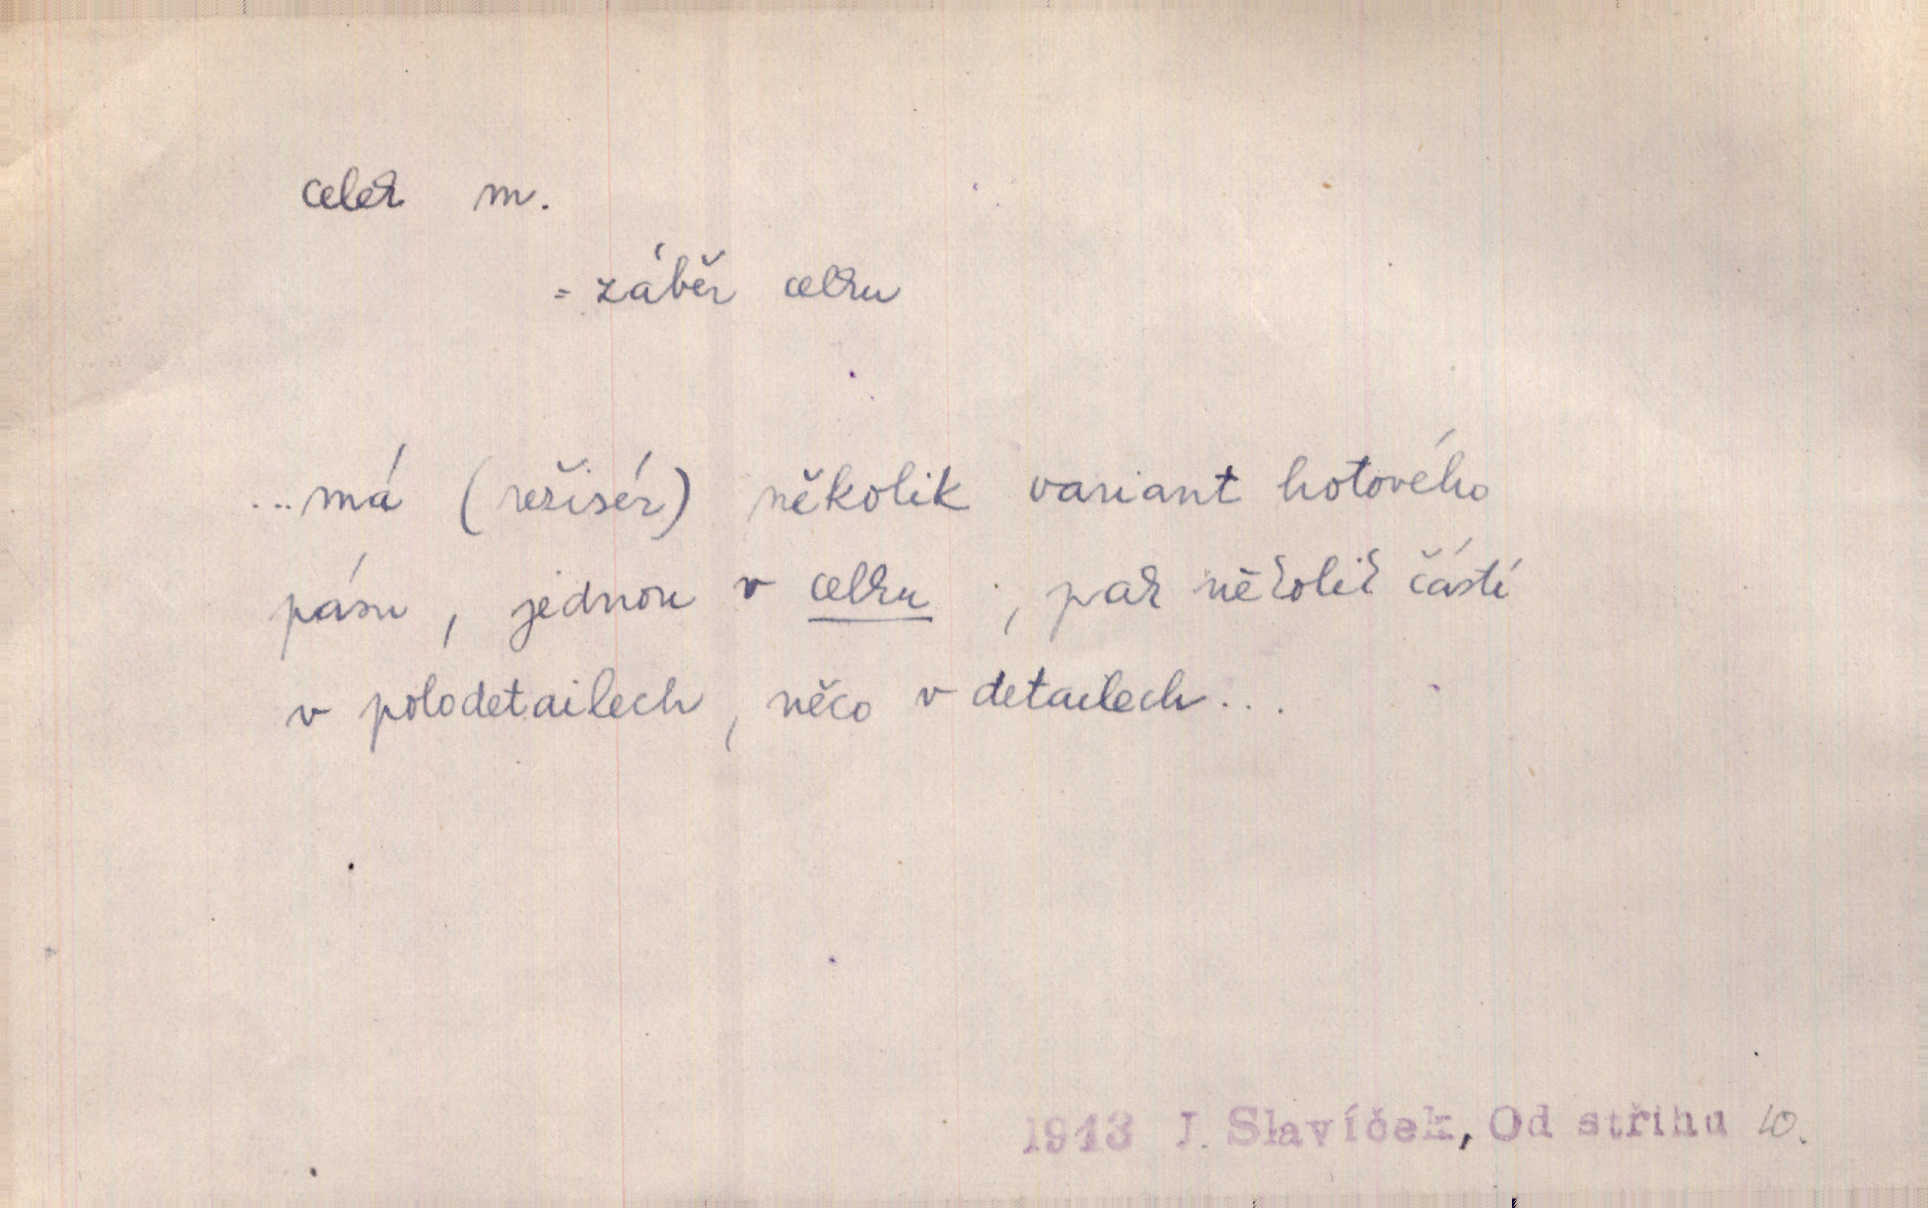 celek m.
= záběr celku
...má (režisér) několik variant hotového
pásu, jednou v celku, pak několik částí
v polodetailech, něco v detailech...
1943 J. Slavíček, Od střihu 10.